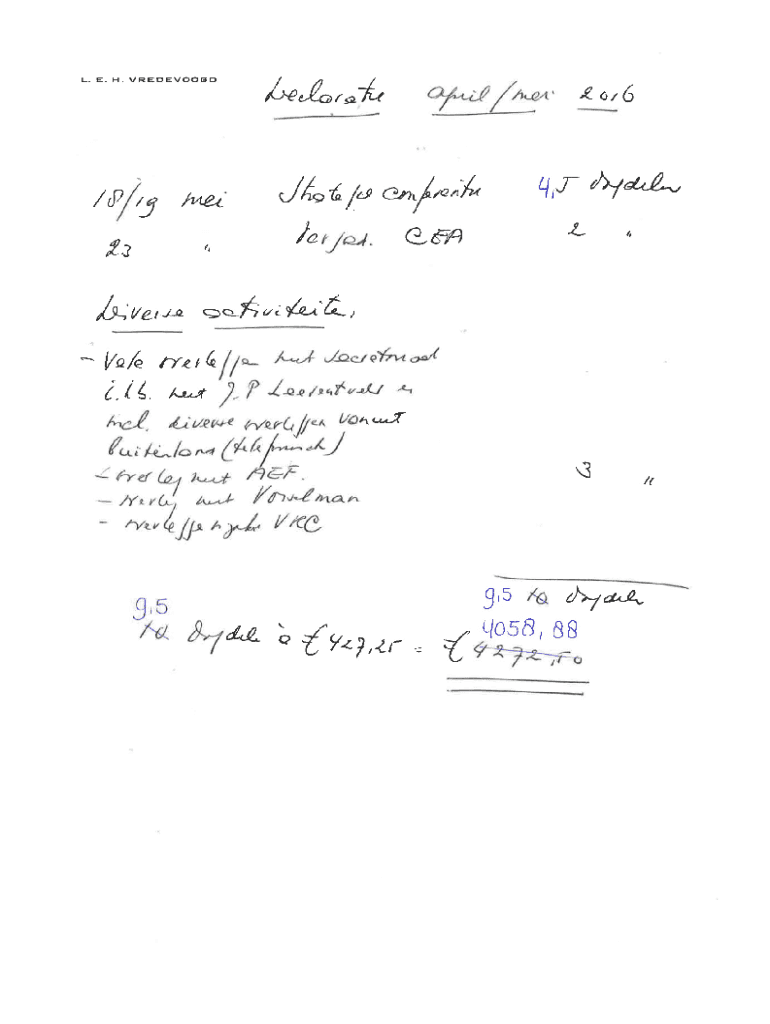 L. E. H. VREDEVOOGD
Declaratie april/mei 2016
18/19 mei Strategie conferentie 4,5 dagdelen
23 " Vergad. CEA 2 "
Diverse activiteiten,
- Vele overleggen met secretariaat
i.h.b. met J.P
incl. diverse overleggen vanuit
buitenland (telefonisch)
- overleg met AEF. 3 "
- overleg met Vosselman
- overleggen VKC
9,5 10 dagdelen
9,5 4058,88
10 dagdelen à € 427,25 = € 4272,50